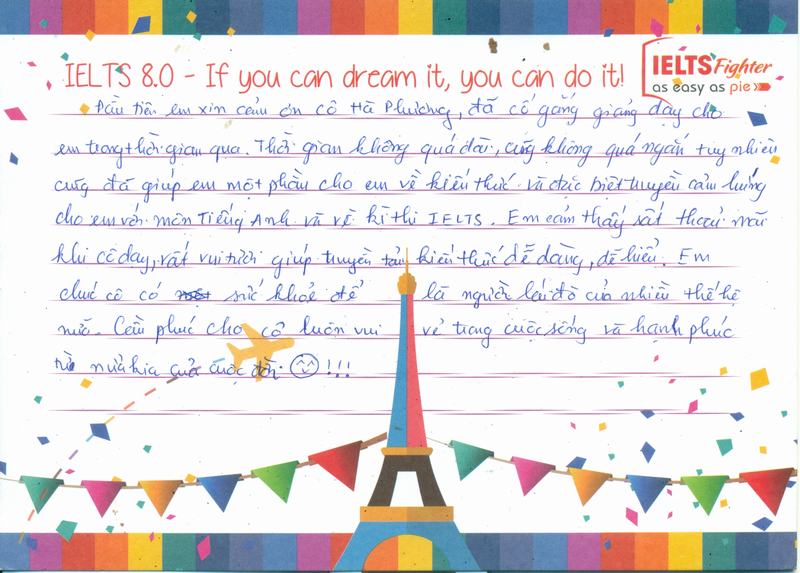 IELTS 8.0 - If you can dream it, you can do it!
IELTS Fighter
as easy as pie
Đầu tiên em xin cảm ơn cô Hà Phương, đã cố gắng giảng dạy cho
em trong thời gian qua. Thời gian không quá dài, cũng không quá ngắn tuy nhiên
cũng đã giúp em một phần cho em về kiến thức và đặc biệt truyền cảm hứng
cho em với môn Tiếng Anh và về kì thi IELTS. Em cảm thấy rất thoải mái
khi cô dạy, rất vui tươi giúp truyền tải kiến thức dễ dàng, dễ hiểu. Em
chúc cô có sức khoẻ để là người lái đò của nhiều thế hệ
nữa. Cầu phúc cho cô luôn vui vẻ trong cuộc sống và hạnh phúc
nửa kia của cuộc đời !!!